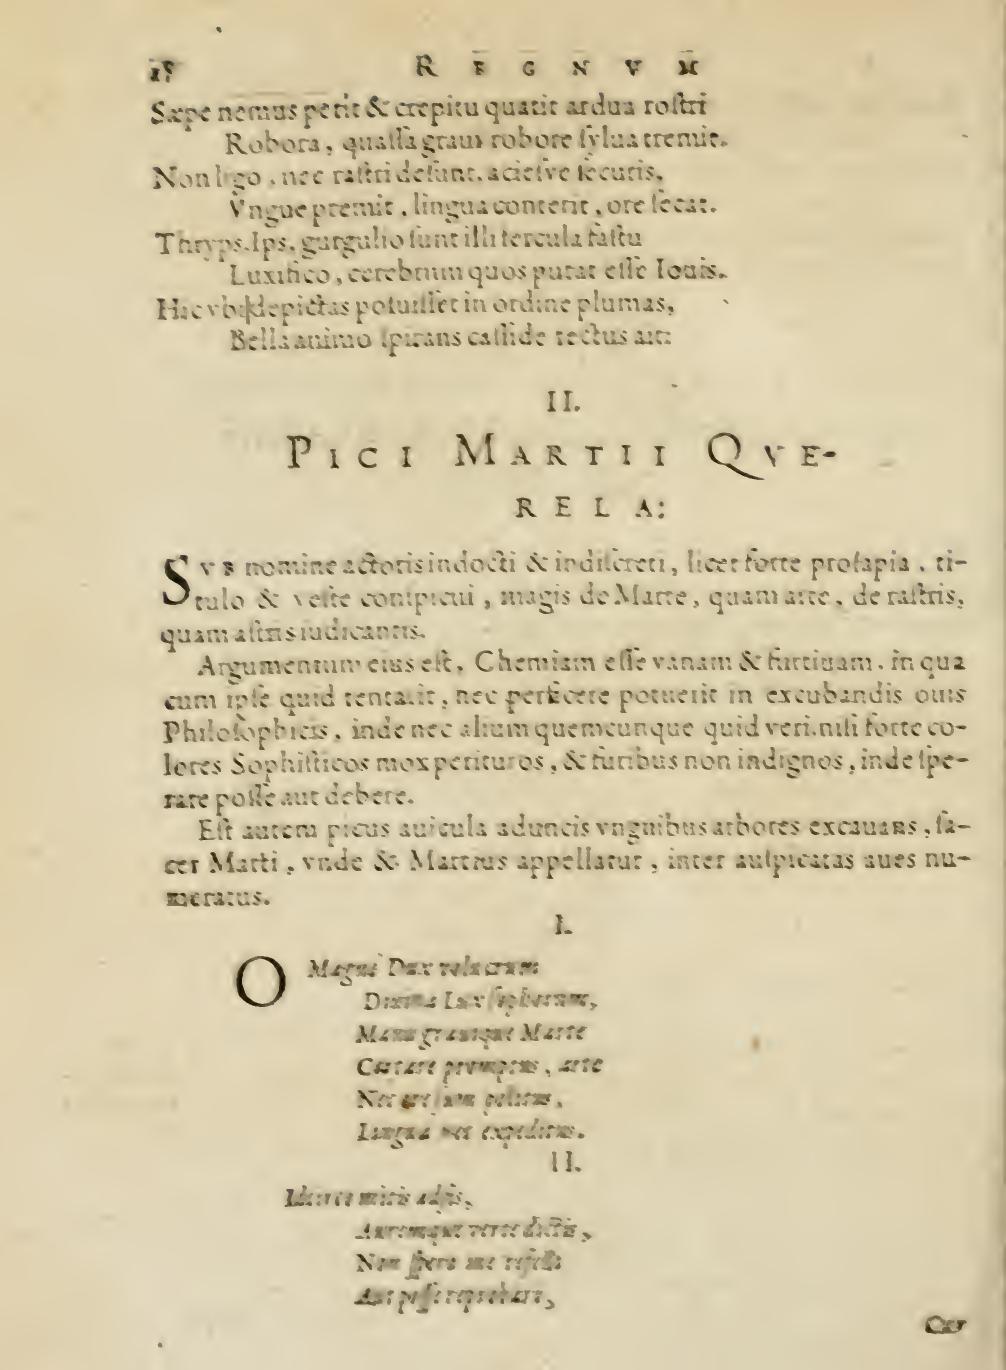 R E G N V M
Sæpe nemus petit & crepitu quatit ardua roſtri
Robora, quaſſa graui robore ſylua tremit.
Non ligo, nec raſtri deſunt, acieſve ſecuris,
Vngue premit, lingua conterit, ore ſecat.
Thryps, Ips, gurgulio ſunt illi fercula faſtu
Luxifico, cerebrum quos putat eſſe Iouis.
Hic vbi depictas poſuiſſet in ordine plumas,
Bella animo ſpirans callide tectus ait:
II.
PICI MARTII QVE-
RELA:
SVB nomine actoris indocti & indiſcreti, licet forte proſapia, ti-
tulo & veſte conſpicui, magis de Marte, quam arte, de raſtris,
quam aſtris iudicantis.
Argumentum eius eſt, Chemiam eſſe vanam & furtiuam, in qua
cum ipſe quid tentarit, nec perficere potuerit in excubandis ouis
Philoſophicis, inde nec alium quemcunque quid veri, niſi forte co-
lores Sophiſticos mox perituros, & furibus non indignos, inde ſpe-
rare poſſe aut debere.
Eſt autem picus auicula aduncis vnguibus arbores excauans, ſa-
cer Marti, vnde & Martius appellatur, inter auſpicatas aues nu-
meratus.
I.
O Magne Dux volucrum
Diuina Lux ſophorum,
Manu grauique Marte
Certare promptus, arte
Nec ore ſum politus,
Lingua nec expeditus.
II.
Idcirco mitis adſis,
Auremque verte dictis,
Non ſpero me refelli
Aut poſſe reprobare,